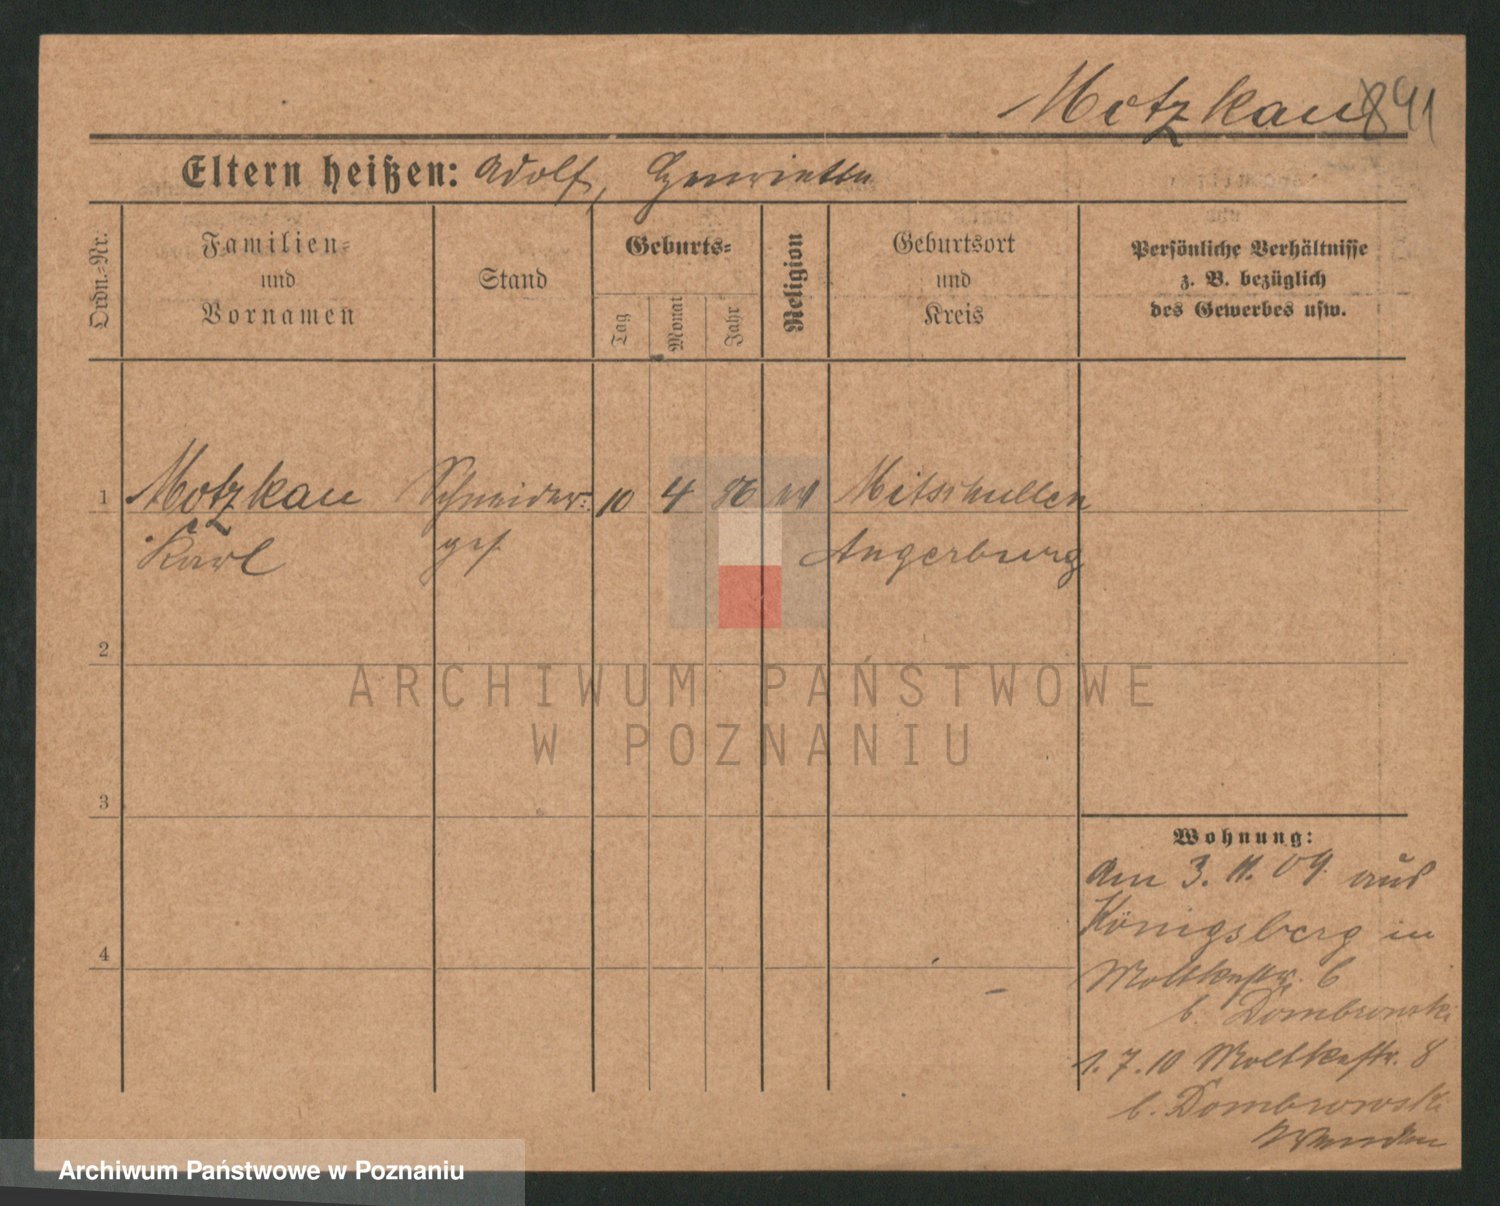 Motzkau 891
Eltern heißen: Adolf, Henriette
Ordn.-Nr.
Familien-
und
Vornamen
Stand
Geburts-
Tag
Monat
Jahr
Religion
Geburtsort
und
Kreis
Persönliche Verhältnisse
z. B. bezüglich
des Gewerbes usw.
1 Motzkau Schneider- 10 4 86 ev Mitschullen
Karl ges. Angerburg
2
3
4
Wohnung:
Am 3. 11. 09. aus
Königsberg in
Moltkestr. 6
b. Dombrowski
1.7.10 Moltkestr. 8
b. Dombrowski
Wenden
ARCHIWUM PAŃSTWOWE
W POZNANIU
Archiwum Państwowe w Poznaniu